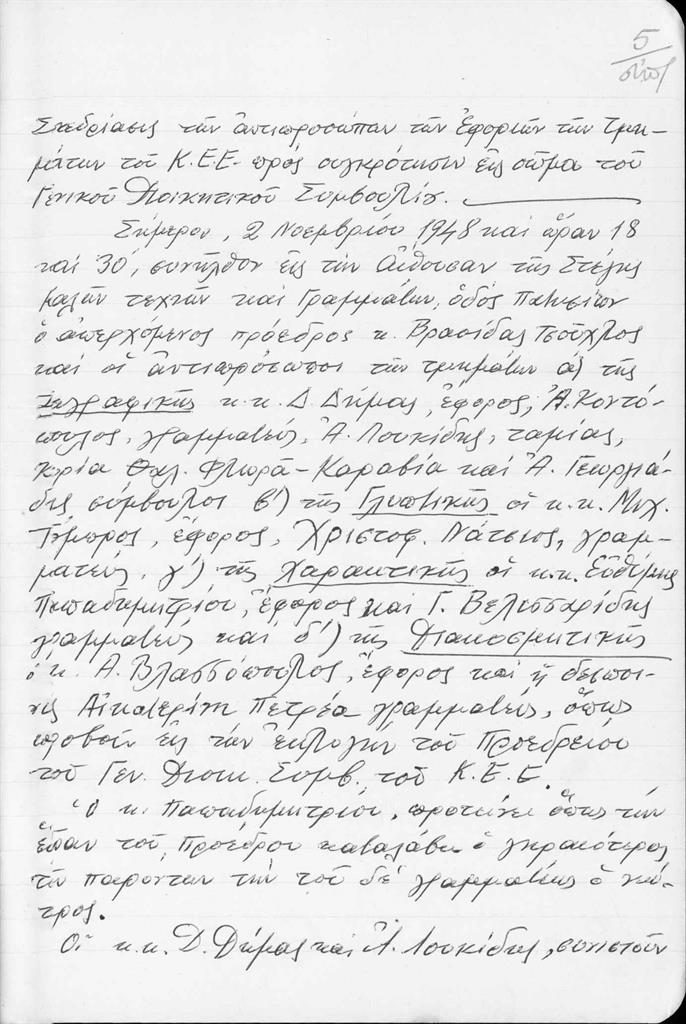 5
Συνεδρίασις τῶν ἀντιπροσώπων τῶν Ἐφοριῶν τῶν Τμη-
μάτων τοῦ Κ.Ε.Ε. πρὸς συγκρότησιν εἰς σῶμα τοῦ
Γενικοῦ Διοικητικοῦ Συμβουλίου.
Σήμερον, 2 Νοεμβρίου 1948 καὶ ὥραν 18
καὶ 30', συνῆλθον εἰς τὴν αἴθουσαν τῆς Στέγης
καλῶν τεχνῶν καὶ Γραμμάτων, ὁδὸς Πατησίων
ὁ ἀπερχόμενος πρόεδρος κ. Βρασίδας Τσούχλος
καὶ οἱ ἀντιπρόσωποι τῶν τμημάτων α) τῆς
Ζωγραφικῆς κ.κ. Δ. Δήμας, ἔφορος, Ἀ. Κοντό-
πουλος, γραμματεύς, Ἀ. Λουκίδης, ταμίας,
κυρία Θαλ. Φλωρᾶ-Καραβία καὶ Ἀ. Γεωργιά-
δης σύμβουλοι β') τῆς Γλυπτικῆς οἱ κ.κ. Μιχ.
Τόμπρος, ἔφορος, Χριστοφ. Νάτσιος, γραμ-
ματεύς, γ') τῆς Χαρακτικῆς οἱ κ.κ. Εὐθύμης
Παπαδημητρίου, ἔφορος καὶ Γ. Βελισσαρίδης
γραμματεύς καὶ δ') τῆς Διακοσμητικῆς
ὁ κ. Α. Βλασσόπουλος, ἔφορος καὶ ἡ δεσποι-
νὶς Αἰκατερίνη Πετρέα γραμματεύς, ὅπως
προβοῦν εἰς τὴν ἐκλογὴν τοῦ Προεδρείου
τοῦ Γεν. Διοικ. Συμβ. τοῦ Κ.Ε.Ε.
Ὁ κ. Παπαδημητρίου, προτείνει ὅπως τὴν
ἕδραν τοῦ Προέδρου καταλάβει ὁ γηραιότερος
τῶν παρόντων τὴν τοῦ δὲ γραμματέως ὁ νεώ-
τερος.
Οἱ κ.κ. Δ. Δήμας καὶ Ἀ. Λουκίδης, συνιστοῦν